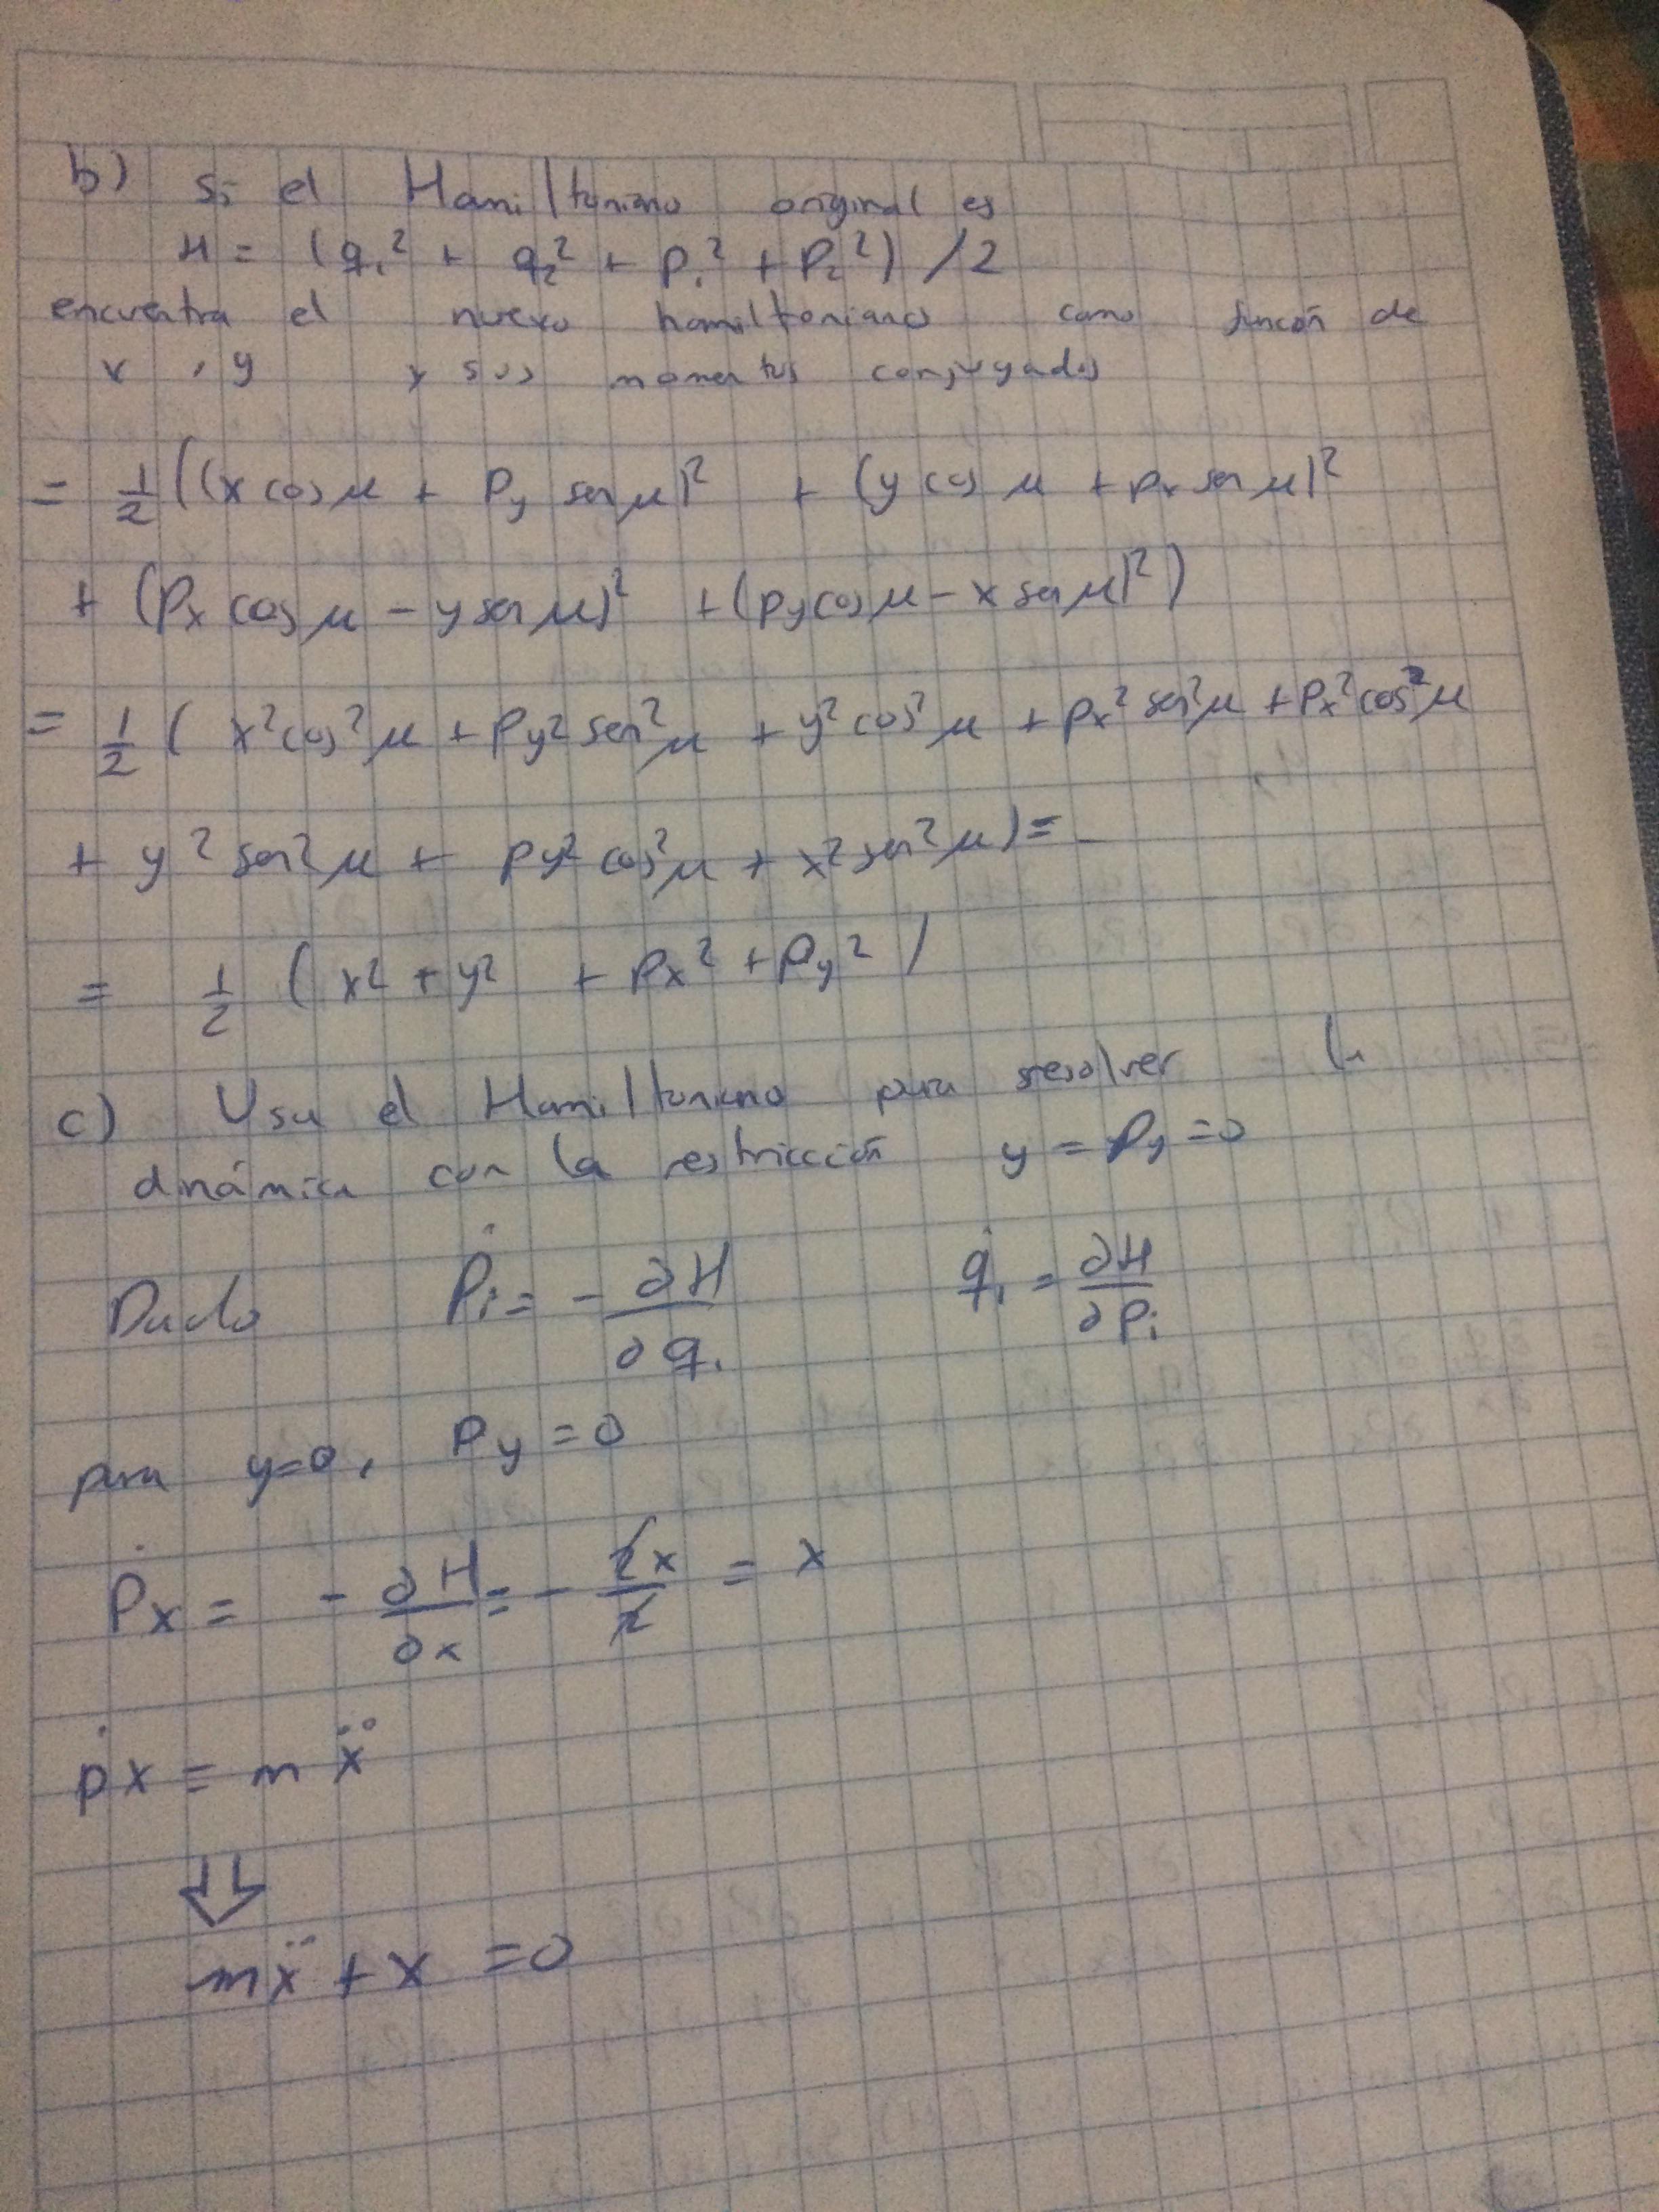 b) Si el Hamiltoniano original es
H = (q₁² + q₂² + p₁² + p₂²) /2
encuentra el nuevo hamiltoniano como función de
x , y y sus momentos conjugados
= 1/2 ((x cos μ + Py sen μ)² + (y cos μ + px sen μ)²
+ (Px cos μ - y sen μ)² + (py cos μ - x sen μ)²)
= 1/2 ( x² cos² μ + Py² sen² μ + y² cos² μ + px² sen² μ + Px² cos² μ
+ y² sen² μ + Py² cos² μ + x² sen² μ) =
= 1/2 ( x² + y² + Px² + Py² )
c) Usa el Hamiltoniano para resolver la
dinámica con la restricción y = Py = 0
Dado Ṗi = - ∂H/∂qi q̇i = ∂H/∂Pi
para y=0, Py = 0
Ṗx = - ∂H/∂x = - 2x/2 = x
ṗx = m ẍ
⇓
mẍ + x = 0